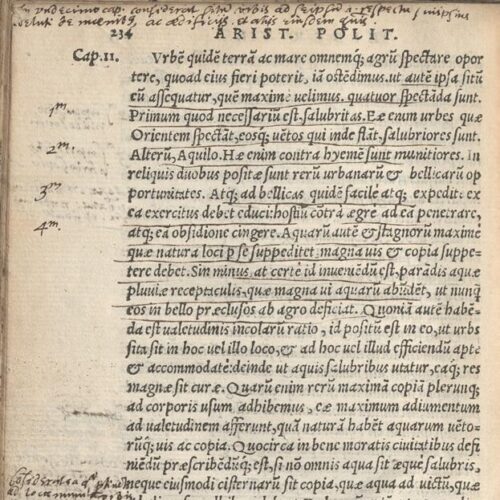 In undecimo cap. considerat situ urbis ad seipsu a respectu suipsius
veluti de moenib9, ac aedificiis, et aliis eiusdem
234 ARIST. POLIT.
Cap.11. Vrbē quidē terrā ac mare omnemq; agrū spectare opor
tere, quoad eius fieri poterit, iā ostēdimus. ut autē ipsa sitū
eū assequatur, quē maximē velimus, quatuor spectāda sunt.
1m. Primum quod necessariū est, salubritas. Eæ enim urbes quæ
Orientem spectāt, eosq; uētos qui inde flāt, salubriores sunt.
2m. Alterū, Aquilo. Hæ enim contra hyemē sunt munitiores. In
reliquis duobus positæ sunt rerū urbanarū & bellicarū op
3m portunitates. Atq; ad bellicas quidē facile atq; expeditè ex
ea exercitus debet educi: hostiū cōtrà ægrè ad eā penetrare,
4m. atq; eā obsidione cingere. Aquarū autē & stagnorū maximè
quæ natura loci p se suppeditet magna uis & copia suppe-
tere debet. Sin minus, at certè id inueniēdū est, parādis aquæ
pluuiæ receptaculis, quæ magna ui aquarū abūdēt, ut nunq̄
eos in bello præclusos ab agro deficiat. Quoniā autē habē-
da est ualetudinis incolarū ratio, id positū est in eo, ut urbs
sita sit in hoc uel illo loco, & ad hoc uel illud efficiendū aptè
& accommodatè: deinde ut aquis salubribus utatur, eaq; res
magnæ sit curæ. Quarū enim rerū maximā copiā plerunq;
ad corporis usum adhibemus, eæ maximum adiumentum
ad ualetudinem afferunt, quā naturā habēt aquarum uēto-
rūq; uis ac copia. Quocirca in benè moratis ciuitatibus defi
niēdū præscribēdūq; est, si nō omnis aqua sit æquè salubris,
neque eiusmodi cisternarū sit copia, quæ aqua ad uictū, quæ